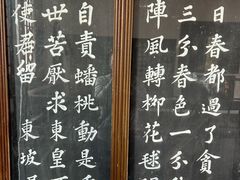 日春都過了貪
三分春色一分
陣風轉柳花毬
自責蟠桃動是
世苦厭求東皇
使君留 東坡